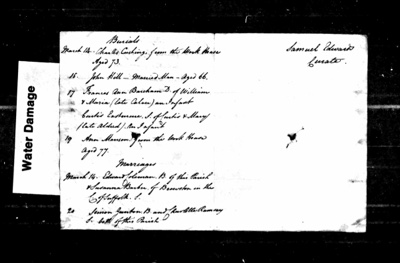 Burials
March 14. Charles Cushing from the Work House
Aged 73.
16 John Bell - Married Man - aged 66.
17 Frances Ann D. of William
& Maria (late ) an Infant
Curtis S. of Curtis & Mary
(late ) An Infant
19 Ann from the Work House
Aged 77.
Marriages
March 14. Edward Coleman B. of this Parish
& Susanna Barber of in the
C. of Suffolk S.
20 Simon B. and Charlotte Ramsey
S. both of this Parish
Samuel Edwards
Curate
Water Damage